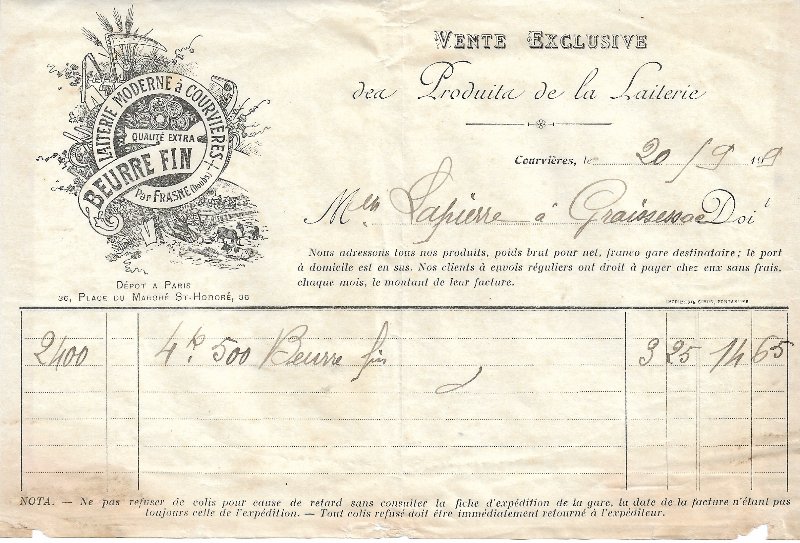 LAITERIE MODERNE à COURVIÈRES
QUALITÉ EXTRA
BEURRE FIN
Par FRASNE (Doubs)
DÉPOT A PARIS
36, PLACE DU MARCHÉ ST-HONORÉ, 36
VENTE EXCLUSIVE
des Produits de la Laiterie
Courvières, le 20/9 19
Lapierre à Graissessac Doit
Nous adressons tous nos produits, poids brut pour net, franco gare destinataire; le port
à domicile est en sus. Nos clients à envois réguliers ont droit à payer chez eux sans frais,
chaque mois, le montant de leur facture.
2400 4k 500 Beurre fin 3 25 14 65
NOTA. — Ne pas refuser de colis pour cause de retard sans consulter la fiche d'expédition de la gare, la date de la facture n'étant pas
toujours celle de l'expédition. — Tout colis refusé doit être immédiatement retourné à l'expéditeur.